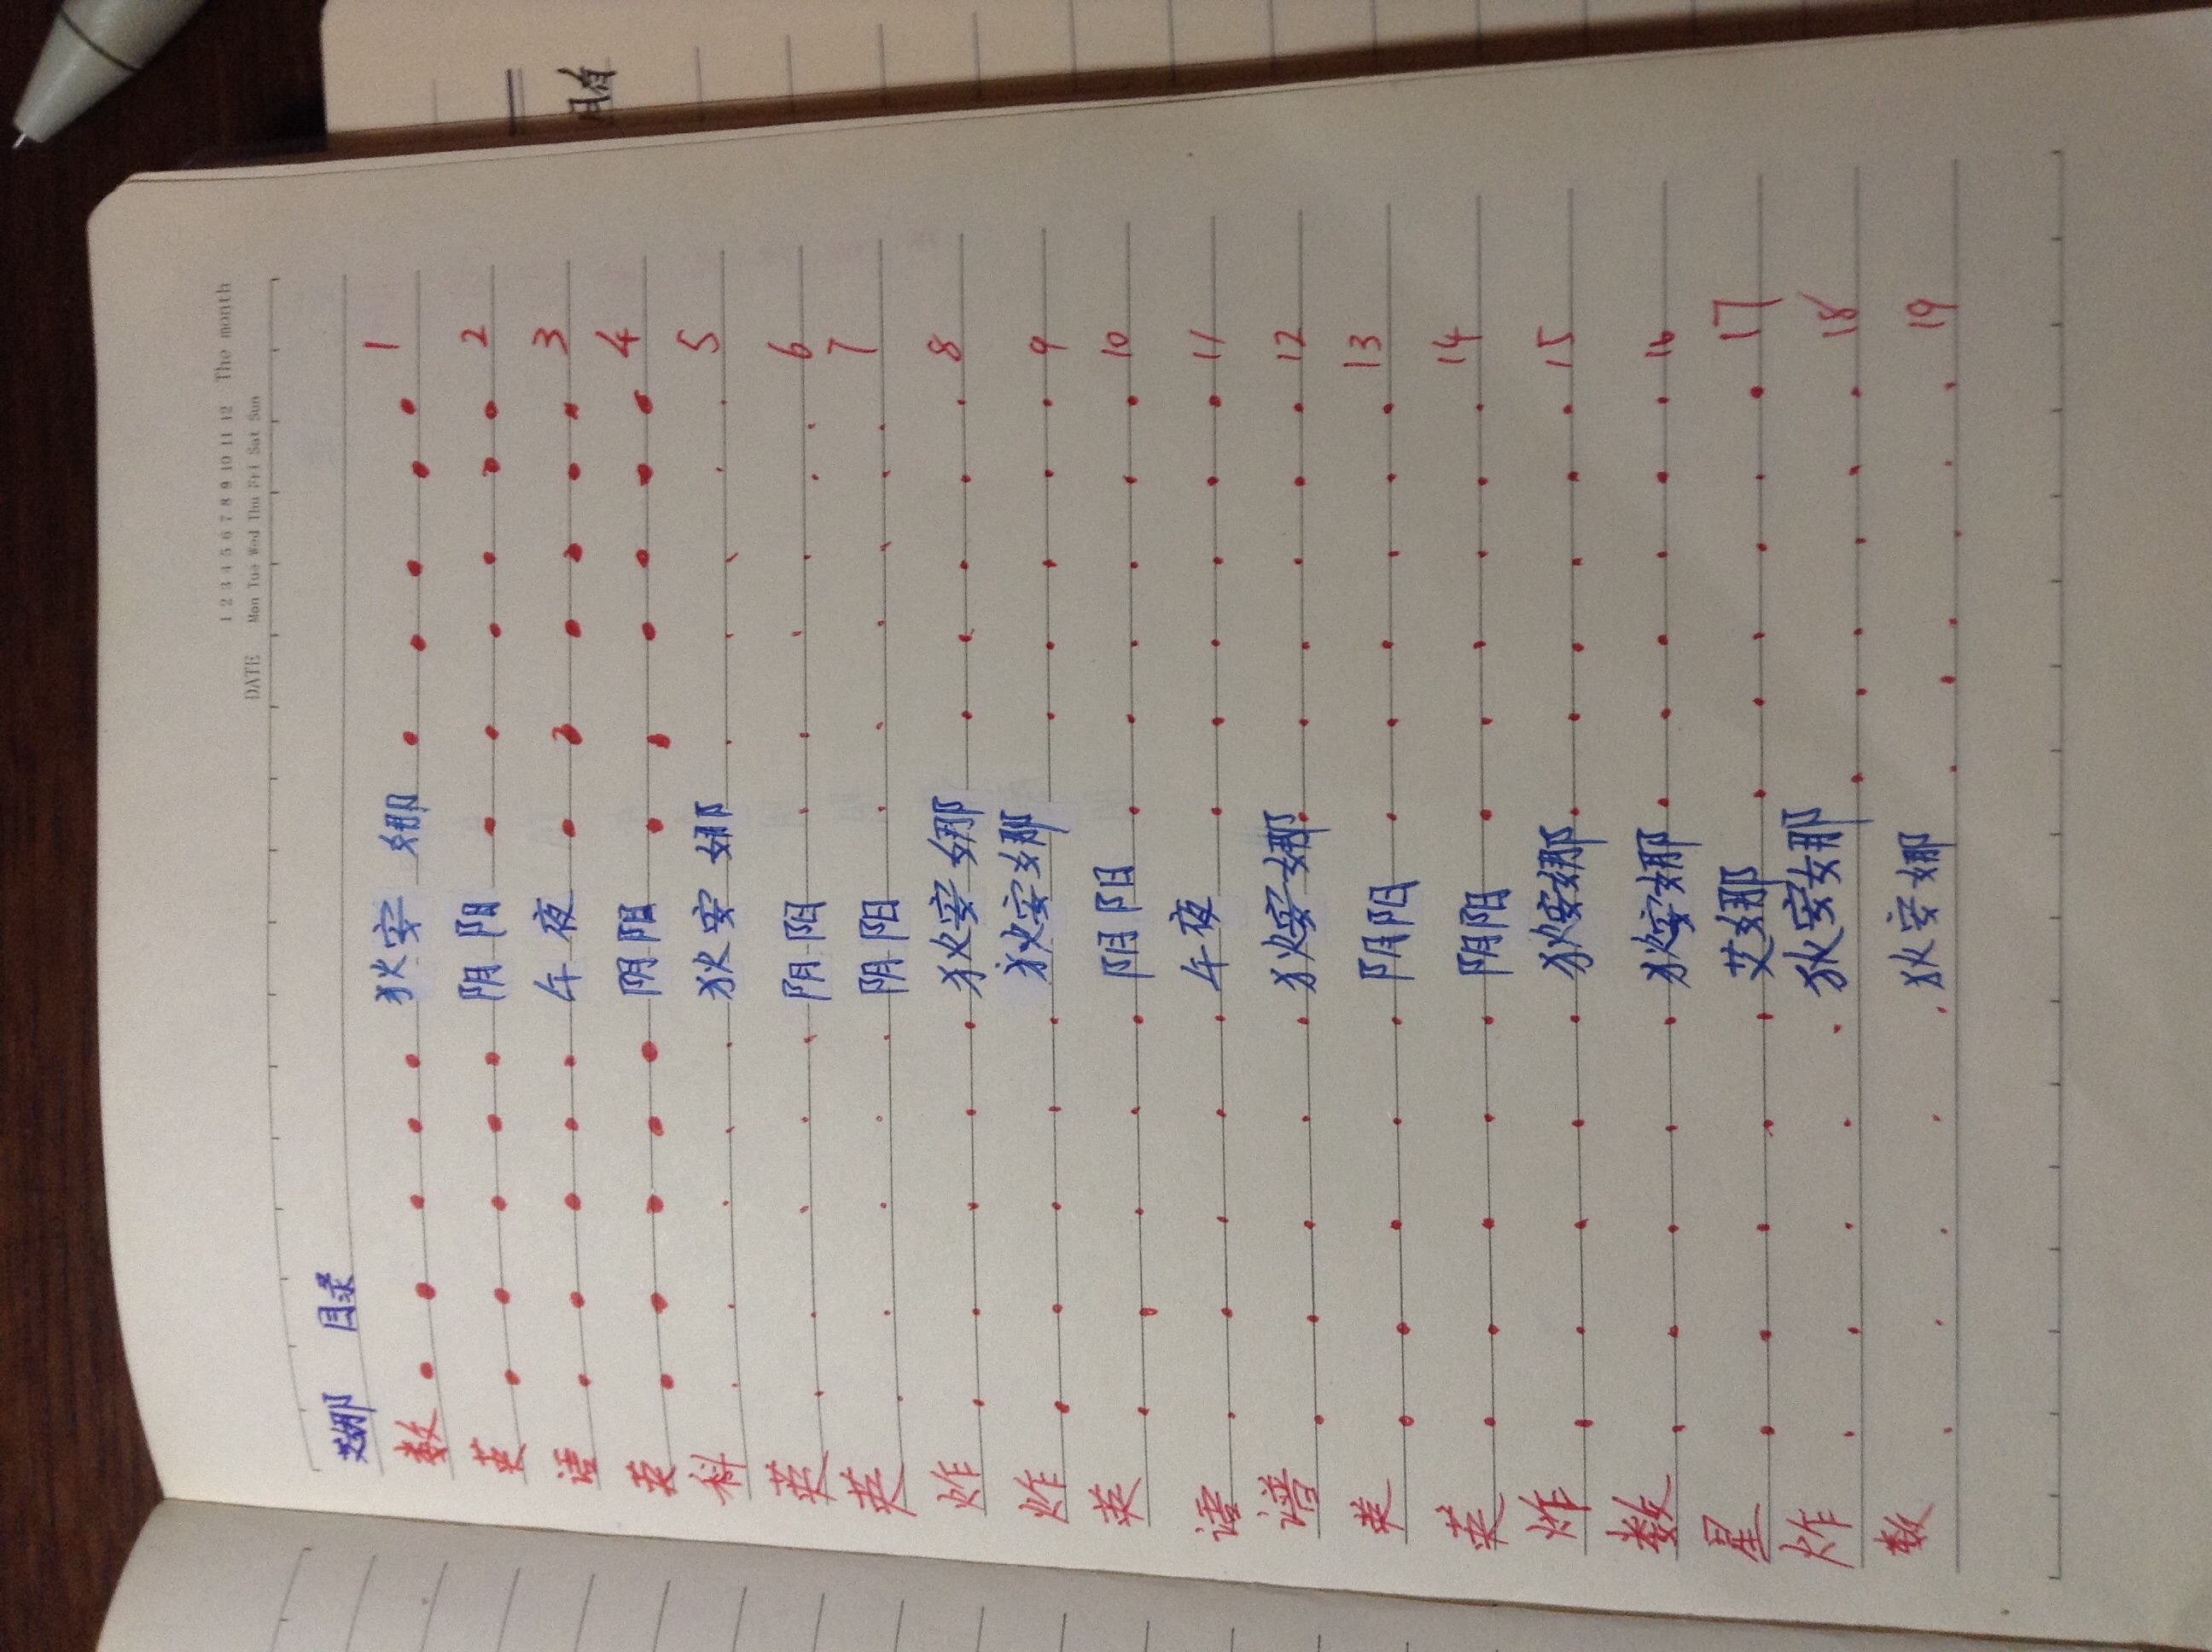 1 2 3 4 5 6 7 8 9 10 11 12 The month
DATE Mon Tue Wed Thu Fri Sat Sun
艾娜 目录
数 · · · · · 狄安娜 · · · · · 1
英 · · · · · 阴阳 · · · · · · 2
语 · · · · · 午夜 · · · · · · 3
英 · · · · · 阴阳 · · · · · · 4
科 · · · · · 狄安娜 · · · · · 5
英 · · · · · 阴阳 · · · · · · 6
英 · · · · · 阴阳 · · · · · · 7
炸 · · · · · 狄安娜 · · · · · 8
炸 · · · · · 狄安娜 · · · · · 9
英 · · · · · 阴阳 · · · · · · 10
语 · · · · · 午夜 · · · · · · 11
谱 · · · · · 狄安娜 · · · · · · 12
英 · · · · · 阴阳 · · · · · · 13
英 · · · · · 阴阳 · · · · · · 14
炸 · · · · · 狄安娜 · · · · · · 15
数 · · · · · 狄安娜 · · · · · · 16
星 · · · · · 艾娜 · · · · · · 17
炸 · · · · · 狄安娜 · · · · · · 18
数 · · · · · 狄安娜 · · · · · · 19